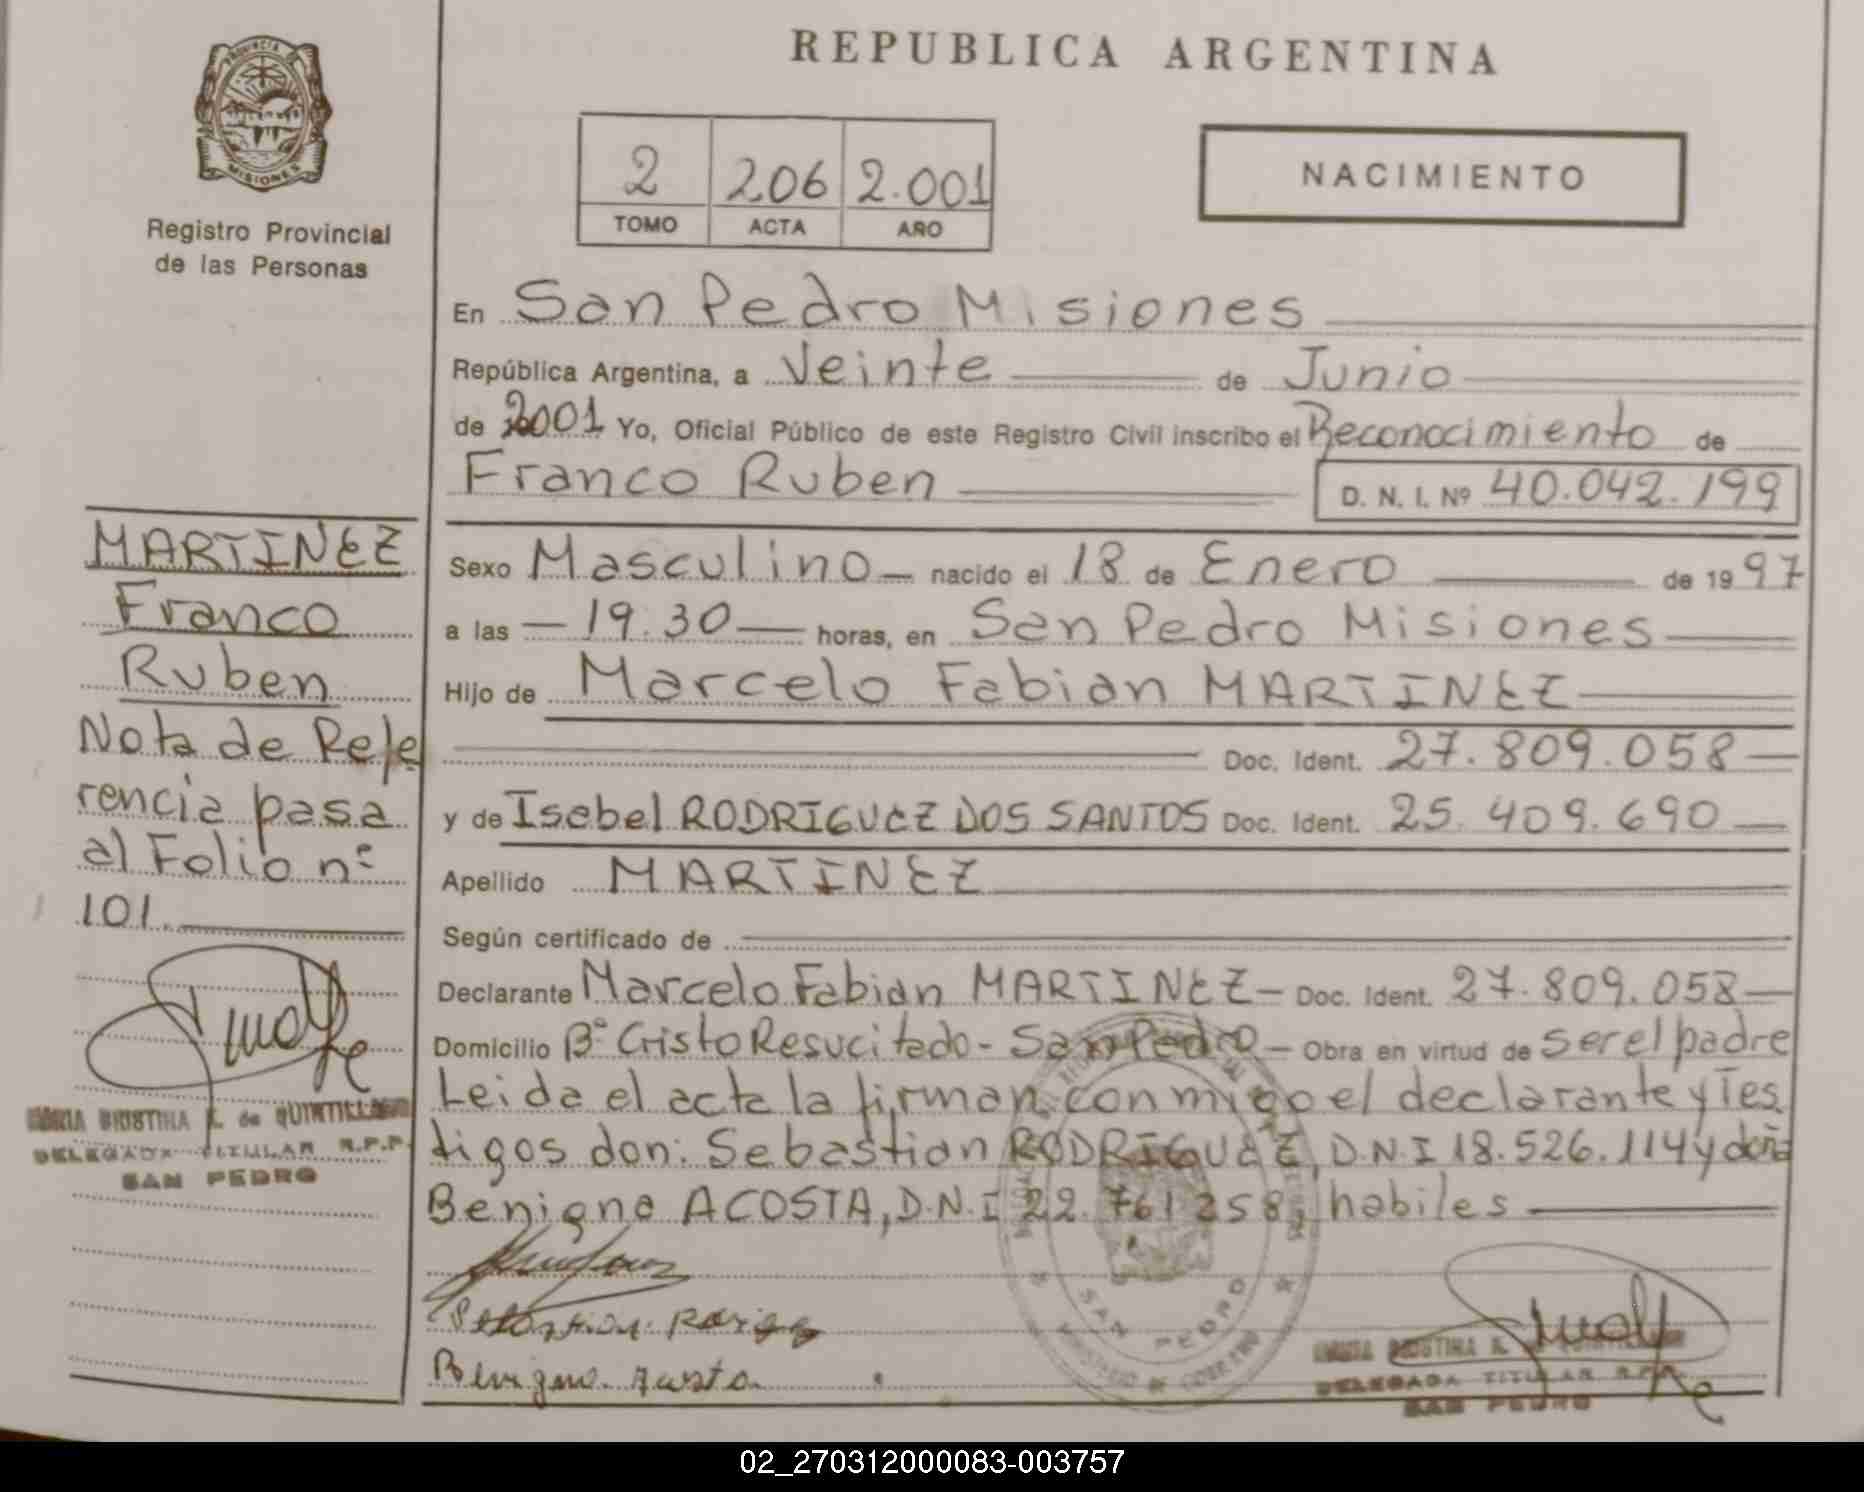 REPUBLICA ARGENTINA
PROVINCIA
MISIONES
Registro Provincial
de las Personas
2 206 2.001
TOMO ACTA AÑO
NACIMIENTO
En San Pedro Misiones
República Argentina, a Veinte de Junio
de 2001 Yo, Oficial Público de este Registro Civil inscribo el Reconocimiento de
Franco Ruben D. N. I. Nº 40.042.199
Sexo Masculino nacido el 18 de Enero de 1997
a las 19.30 horas, en San Pedro Misiones
Hijo de Marcelo Fabian MARTINEZ
Doc. Ident. 27.809.058
y de Isabel RODRIGUEZ DOS SANTOS Doc. Ident. 25.409.690
Apellido MARTINEZ
Según certificado de
Declarante Marcelo Fabian MARTINEZ Doc. Ident. 27.809.058
Domicilio Bº Cristo Resucitado - San Pedro - Obra en virtud de ser el padre
Leida el acta la firman conmigo el declarante y Tes
tigos don: Sebastian RODRIGUEZ, D.N.I 18.526.114 y doña
Benigna ACOSTA, D.N.I 22.761.258, habiles
MARTINEZ
Franco
Ruben
Nota de Refe
rencia pasa
al Folio nº
101.
de QUINTILLANO
DELEGADA TITULAR R.P.P.
SAN PEDRO
SAN PEDRO
MINISTERIO DE GOBIERNO
DELEGADA TITULAR R.P.P.
SAN PEDRO
02_270312000083-003757